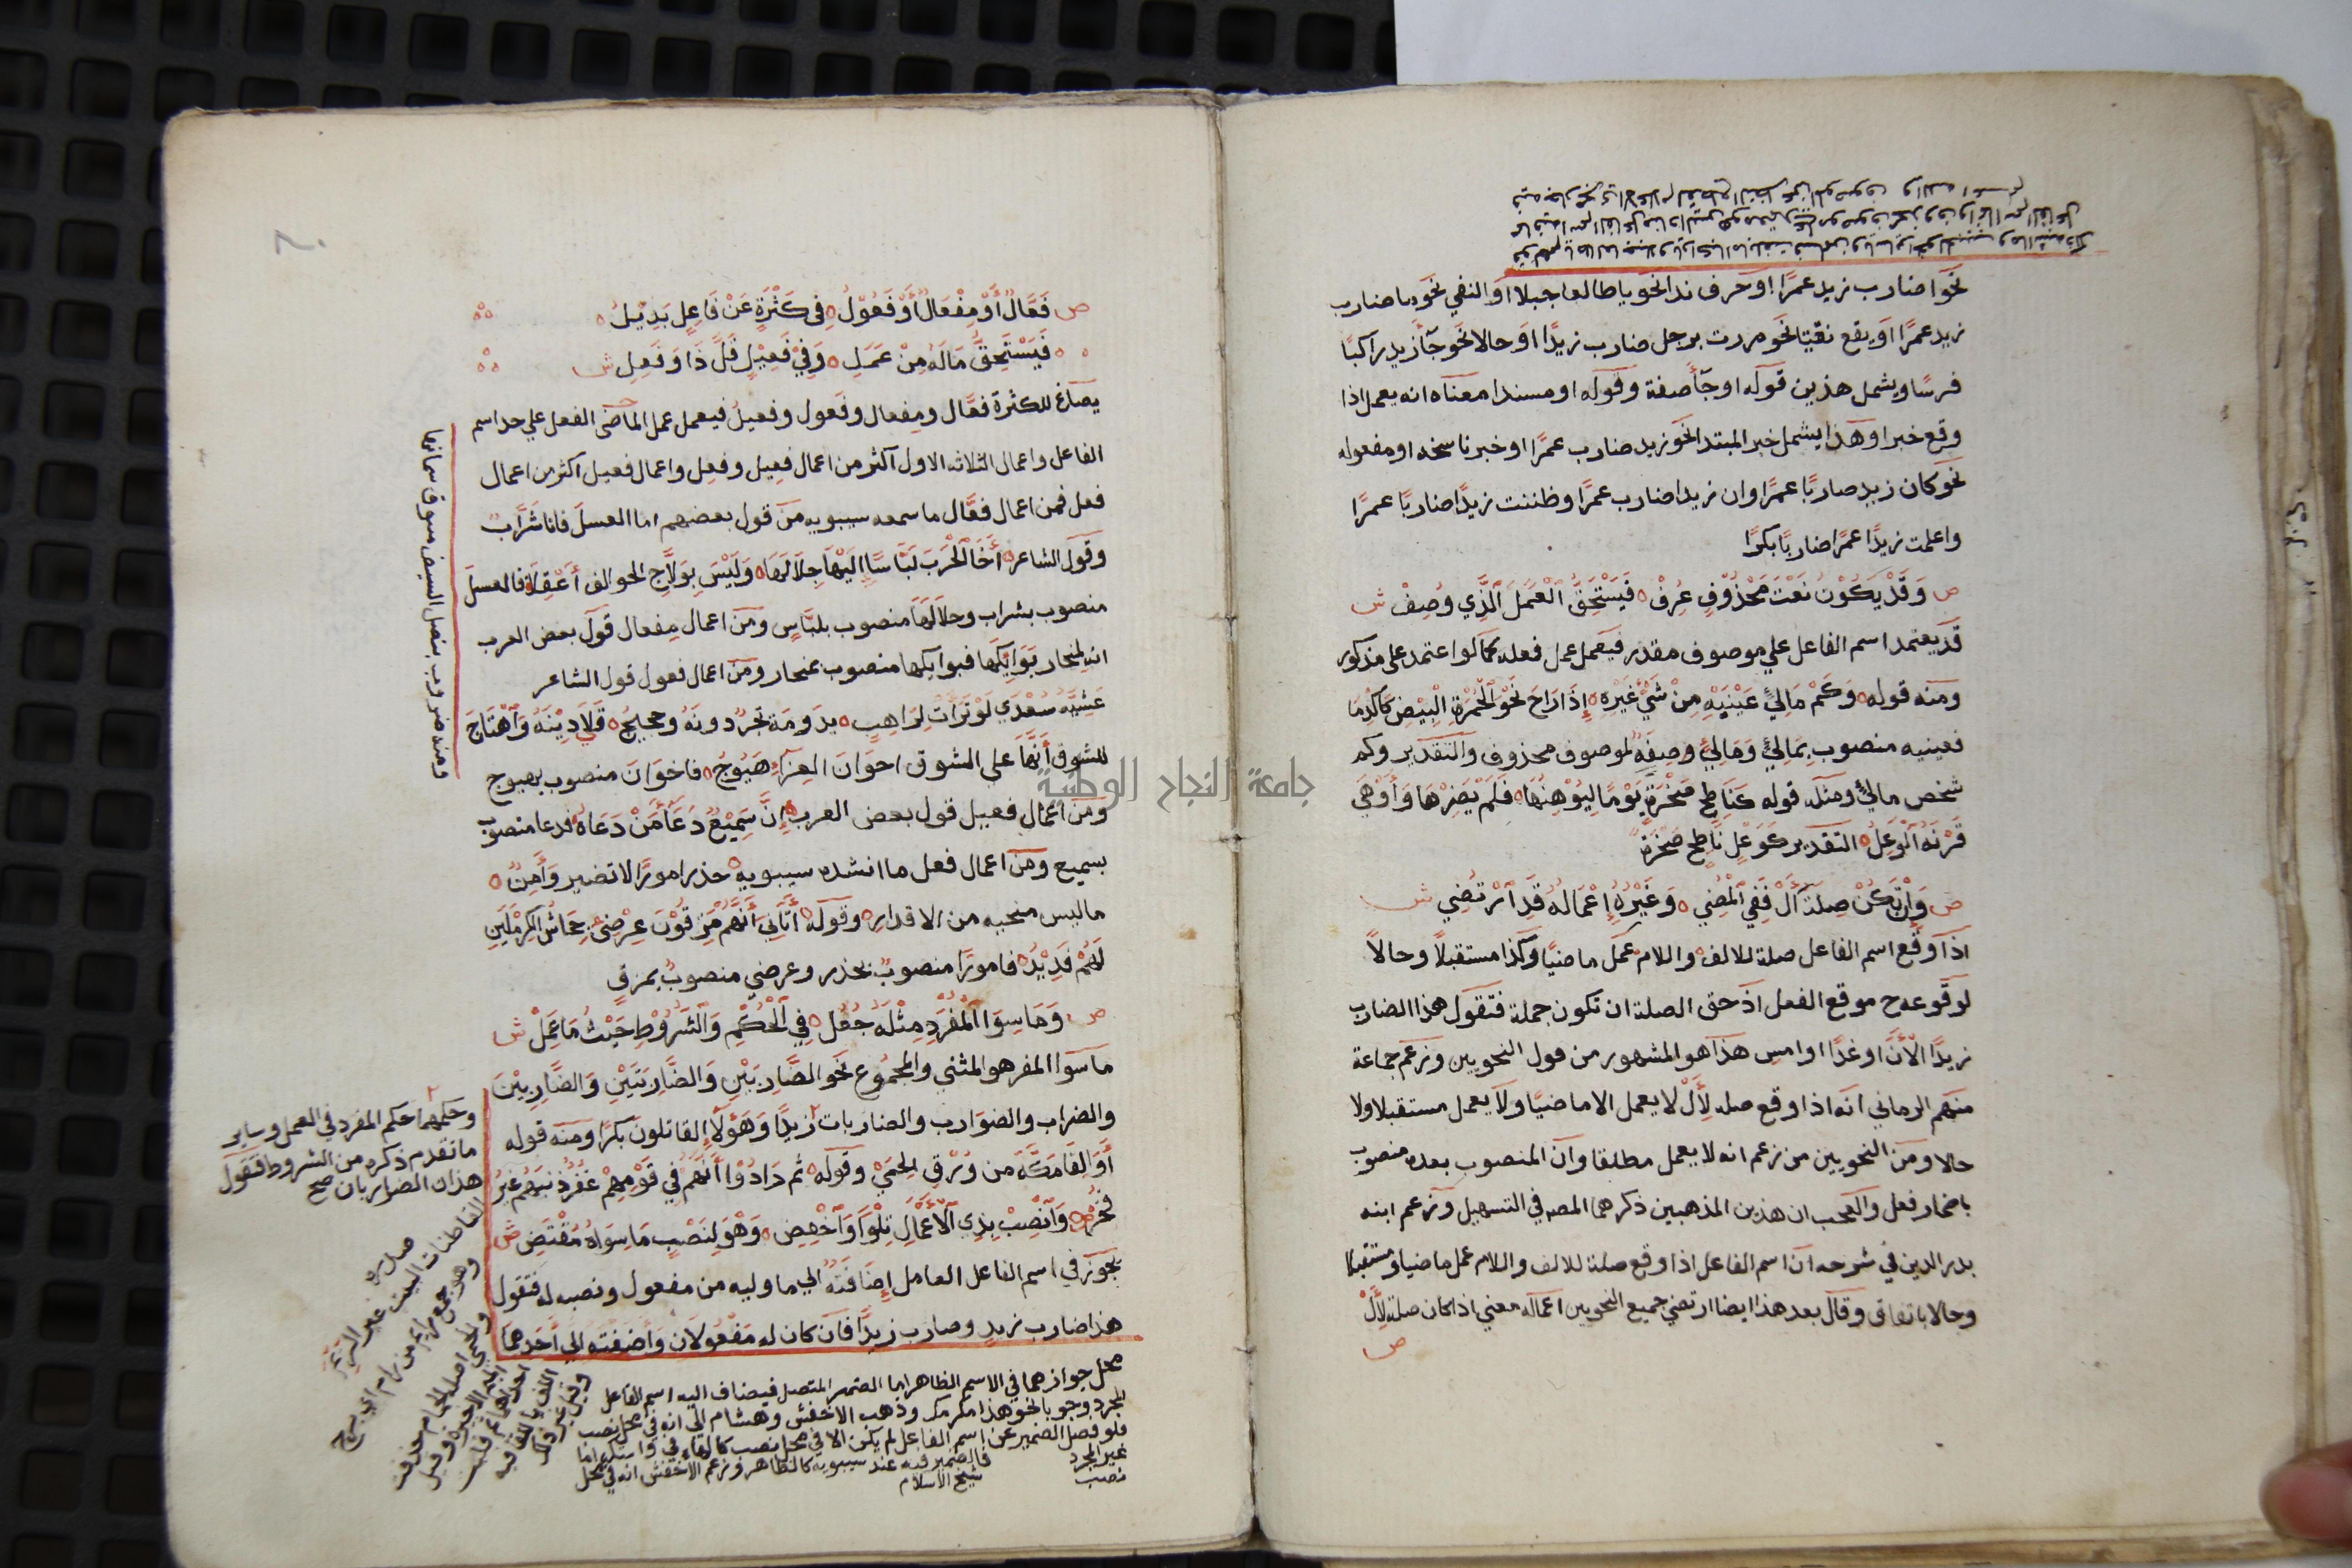 نحو اضارب زيد عمرًا او حرف ندا نحو يا طالعا جبلا او النفي نحو ما ضارب
زيد عمرًا او يقع نعتا نحو مررت برجل ضارب زيدًا او حالا نحو جآ زيد راكبًا
فرسًا ويشمل هذين قوله او جآ صفة وقوله او مسندا معناه انه يعمل اذا
وقع خبرا وهذا يشمل خبر المبتدا نحو زيد ضارب عمرًا او خبر ناسخه او مفعوله
نحو كان زيد ضاربًا عمرًا وان زيدا ضارب عمرًا وظننت زيدًا ضاربًا عمرًا
واعلمت زيدًا عمرًا ضاربًا بكرًا
ص وَقَدْ يَكُوْنُ نَعْتَ مَحْذُوْفٍ عُرِفْ ه فَيَسْتَحِقُّ الْعَمَلَ الَّذِي وُصِفْ ش
قد يعتمد اسم الفاعل علي موصوف مقدر فيعمل عمل فعله كما لو اعتمد على مذكور
ومنه قوله ه وَكَمْ مَالِئٍ عَيْنَيْهِ مِنْ شَيْءٍ غَيْرِهِ ه إِذَا رَاحَ نَحْوَ الْجَمْرَةِ الْبِيْضُ كَالدُّمَا
فعينيه منصوب بمالئ ومالئ وصفة لموصوف محذوف والتقدير وكم
شخص مالئ ومثله قوله كَنَاطِحٍ صَخْرَةً يَوْمًا لِيُوْهِنَهَا ه فَلَمْ يَضِرْهَا وَأَوْهَى
قَرْنَهُ الْوَعِلُ ه التقدير كَوَعْلٍ نَاطِحٍ صَخْرَةً
ص وَإِنْ يَكُنْ صِلَةَ أَلْ فَفِي الْمُضِيْ ه وَغَيْرِهِ إِعْمَالُهُ قَدِ ارْتُضِي ش
اذا وقع اسم الفاعل صلة للالف واللام عمل ماضيًا وكذا مستقبلًا وحالًا
لوقوعه ح موقع الفعل اذ حق الصلة ان تكون جملة فتقول هذا الضارب
زيدًا الآن او غدًا او امس هذا هو المشهور من قول النحويين وزعم جماعة
منهم الرماني انه اذا وقع صلة لأل لا يعمل الا ماضيًا ولا يعمل مستقبلا ولا
حالا ومن النحويين من زعم انه لا يعمل مطلقا وان المنصوب بعده منصوب
باضمار فعل والعجب ان هذين المذهبين ذكرهما المصه في التسهيل وزعم ابنه
بدر الدين في شرحه ان اسم الفاعل اذا وقع صلة للالف واللام عمل ماضيا ومستقبلا
وحالا باتفاق وقال بعد هذا ايضا ارتضي جميع النحويين اعماله معني اذا كان صلة لأل
ص
ص فَعَّالٌ أَوْ مِفْعَالٌ أَوْ فَعُوْلُ ه فِي كَثْرَةٍ عَنْ فَاعِلٍ بَدِيْلُ
فَيَسْتَحِقُّ مَا لَهُ مِنْ عَمَلِ ه وَفِيْ فَعِيْلٍ قَلَّ ذَا وَفَعِلِ ش
يصاغ للكثرة فعَّال ومِفعال وفَعول وفعيل فيعمل عمل الماضى الفعل علي حد اسم
الفاعل واعمال الثلاثه الاول اكثر من اعمال فعيل وفعل واعمال فعيل اكثر من اعمال
فعل فمن اعمال فعَّال ما سمعه سيبويه من قول بعضهم اما العسلَ فانا شَرَّابٌ
وقول الشاعر ه أَخَا الْحَرْبِ لَبَّاسًا إِلَيْهَا جِلَالَهَا ه وَلَيْسَ بِوَلَّاجِ الخوالف أَعْقَلَا ه فالعسل
منصوب بشراب وجلالها منصوب بلبَّاسٍ ومن اعمال مِفعال قول بعض العرب
انه لمنحار بَوَايِكَهَا فبوايكها منصوب بمنحار ومن اعمال فعول قول الشاعر
عَشِيَّةَ سُعْدَي لَوْ تَرَاءَتْ لِرَاهِبٍ ه بدَومَة تَجْرٌ دونه وحجيجُ ه قَلَا دِيْنَهُ وَاهْتَاجَ
للشوق أَنَّهَا علي الشوق اخوان العزآء هَيُوجُ ه فاخوَان منصوب بهيوج
ومن اعمال فعيل قول بعض العرب ه إِنَّ اللَّهَ سَمِيْعٌ دُعَاءَ مَنْ دَعَاهُ ه فدعا منصوب
بسميع ومن اعمال فعل ما انشده سيبويه ه حذر امورًا لا تضير وَآمِنٌ ه
ما ليس منجيه من الاقدار ه وقوله ه أَتَانِي أَنَّهُمْ مَزِقُوْنَ عِرْضِيْ ه جِحَاشُ الْكِرْمَلَيْنِ
لَهُمْ فَدِيْدُ ه فامورًا منصوبٌ بحذر وعرضي منصوبٌ بمزق
ص وَمَا سِوَا الْمُفْرَدِ مِثْلَهُ جُعِلْ ه فِي الْحُكْمِ وَالشُّرُوْطِ حَيْثُ مَا عَمِلْ ش
ما سوا المفر هو المثني والمجموع نحو الضَّارِبَيْنِ وَالضَّارِبَتَيْنِ وَالضَّارِبِيْنَ
والضراب والضوَارب والضاربات زيدًا وَهَؤُلَآءِ القاتلون بكرًا ومنه قوله
أَوَالِفًا مَكَّةَ مِن وُرْقِ الْحَمِيْ وقوله ه ثم زَادُوْا أَنَّهُمْ فِي قَوْمِهِمْ غُفُرٌ ذَنْبَهُمْ غَيْرُ
فُخُرْ ص وَانْصِبْ بِذِي الْاعْمَالِ تِلْوًا وَاخْفِضِ ه وَهْوَ لِنَصْبِ مَا سِوَاهُ مُقْتَضِ ش
يجوز في اسم الفاعل العامل إِضَافَتُهُ الي ما وليه من مفعول ونصبه له فتقول
هذا ضارب زيدٍ وضارب زيدًا فان كان له مَفْعُولَان وَأَضَفْتَه الي أَحَدِهِمَا
ومنه ضروب بنصل السيف سوق سمانها
وحكمهما حكم المفرد في العمل وساير
ما تقدم ذكره من الشروط فتقول
هذان الضاربان صح
القاطنات البيت غير الريم
وهو جمع رائم من رام اي برح
والحمي اصله الحمام حذفت
محل جوازهما في الاسم الظاهر اما الضمير المتصل فيضاف اليه اسم الفاعل
المجرد وجوبا نحو هذا مكرمك وذهب الاخفش وهشام الى انه في محل نصب
فلو فصل الضمير عن اسم الفاعل لم يكن الا في محل نصب
فالضمير فيه عند سيبويه كالظاهر وزعم الاخفش انه في محل
نصب
شيخ الاسلام
جامعة النجاح الوطنية